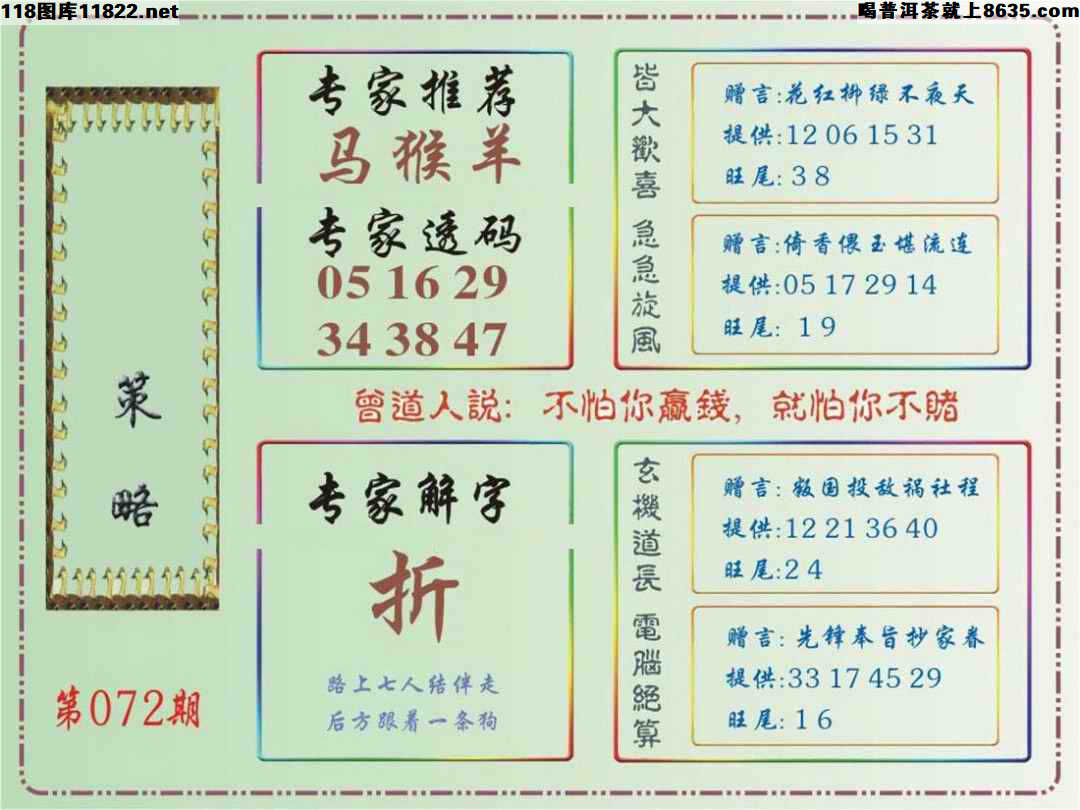 118图库11822.net
喝普洱茶就上8635.com
策
略
第072期
专家推荐
马猴羊
专家透码
05 16 29
34 38 47
皆大歡喜
赠言:花红柳绿不夜天
提供:12 06 15 31
旺尾: 3 8
急急旋風
赠言:倚香偎玉堪流连
提供:05 17 29 14
旺尾: 1 9
曾道人説: 不怕你贏錢, 就怕你不賭
专家解字
折
路上七人结伴走
后方跟着一条狗
玄機道長
赠言: 叛国投敌祸社程
提供:12 21 36 40
旺尾:2 4
電腦絕算
赠言: 先锋奉旨抄家眷
提供:33 17 45 29
旺尾:1 6